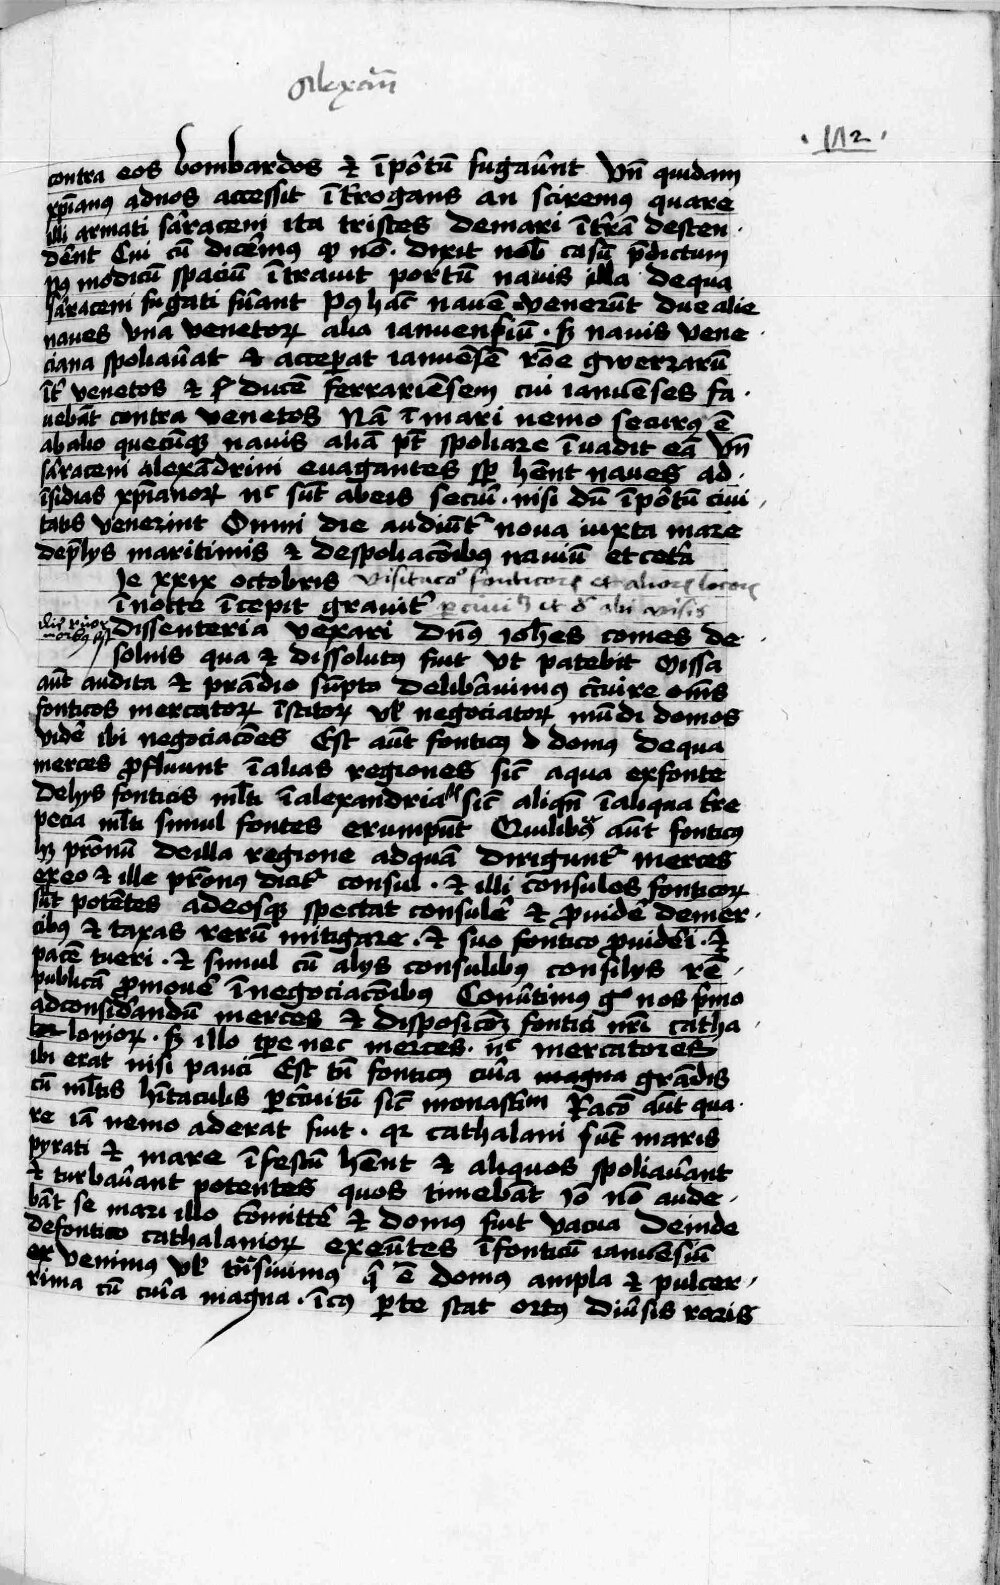 Alexan̄
. 112 .
contra eos bombardos et īpôtū fugaûnt Vn̄ quidam
xp̄ianus adnos accessit īt̄rogans an sciremus quare
illi armati sâraceni ita tristes demari īt̄râ descen
dênt Cui cū dicêmus qp nō . dixit nob̄ casū p̄dictum
pꝰ modicū spaciū ītrauit portū nauis illa dequa
sâraceni fugati fûant Pꝰ hac̄ nauē venerūt due alie
naues vnā venetorꝝ alia ianuensiū . sꝫ nauis vene
ciana spoliaûat et acceꝑat ianuēsē rōe gwerrarū
īt̄ venetos et ꝑ ducē ferrariēsem cui ianuēses fa .
uebāt contra venetos Nā ī mari nemo securꝰ ē
abalio quecūqꝫ nauis aliā pt̄ spoliare īuadit eā Vn̄
sâraceni alexādrini euagantes sp̄ hēnt naues ad .
īsidias xp̄ianorꝝ nc̄ sūt abeis secuî . nisi dū īpôtū ciui
tatis venerint Omni die audiūt᷑ noua iuxta mare
dep̄lijs maritimis et despoliacōibꝰ nauiū et cetâ
Ie xxix octobris visitaco᷑ fonticorꝝ et aliorꝝ locorꝝ
īnocte īcepit grauit᷑
dissenteria vexari Dn̄s ioh̄es comes de
solmis qua et dissolutꝰ fuit vt patebit Missa
aūt audita et prādio sūpto delibâuimus c̄cuire om̄s
fonticos mercatorꝝ īstitorꝝ vꝉ negociatorꝝ mūdi domos
vidê ibi negociacōes Est aūt fonticꝰ d domus dequa
merces ꝓfluunt ī alias regiones sic̄ aqua exfonte
Dehijs fonticis ml̄ti ī alexandria st̄ sic̄ aliqn̄ ī aliqua t̄re
pecia ml̄ti simul fontes erumpūt Quilibꝫ aūt fonticꝰ
hꝫ pr̄onū deilla regione adquā diriguntˀ merces
exeo et ille pr̄onus dicitˀ consul . et illi consules fonticorꝝ
sūt potētes adeosqꝫ spectat consulê et ꝓuidê demer .
cibꝰ et taxas rerū mitigare . et suo fontico ꝓuidêi . et
pacē tueri . et simul cū alijs consulibꝰ consilijs rē
publicā ꝓmouê ī negociacōibꝰ Conûtimus gͦ nos pͥmo
adconsidêandū merces et disposicōꝫ fontici nr̄i catha
laniorꝝ . sꝫ illo tꝑe nec merces . nc̄ mercatores
ibi erāt nisi pauci Est tn̄ fonticꝰ cûia magna grādis
cū ml̄tis hītaculis ꝑ c̄cuitū sic̄ monast̄iu Racō aūt qua .
re iā nemo aderat fuit . qꝛ cathalani sūt maris
pyrati et mare īfestū hēnt et aliquos spoliaûant
et turbaûant potentes quos timebāt iō nō aude .
bāt se mari illo cōmittê et domus fuit vacua Deinde
defontico cathalaniorꝝ exeūtes ī fonticū ianuēsiū
venimus vꝉ trāsiuimus q̄ ē domus ampla et pulcer .
rima cū cûia magna . īcꝰ ꝑte stat ortꝰ diûsis raris